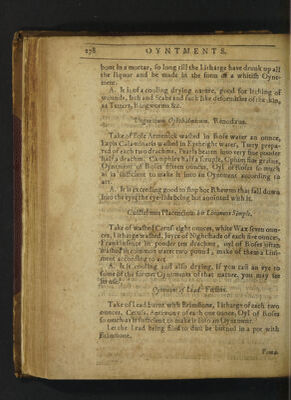 278 OYNTMENTS.
hour in a mortar, so long till the Litharge have drunk up all
the liquor and be made in the form of a whitish Oynt-
ment.
A. It is of a cooling drying nature, good for itching of
wounds, Itch and Scabs and such like deformities of the skin,
as Tetters, Ringworms &c.
Unguentum Ophthalmicum. Renodæus.
Take of Bole Armenick washed in Rose water an ounce,
Lapis Calaminaris washed in Eyebright water, Tutty prepa-
red of each two drachms, Pearls beaten into very fine pouder
half a drachm, Camphire half a scruple, Opium five grains,
Oyntment of Roses fifteen ounces, Oyl of Roses so much
as is sufficient to make it into an Oyntment according to
art.
A. It is exceeding good to stop hot Rheums that fall down
into the eyes, the eye-lids being but anointed with it.
or Liniment Simple.
Take of washed Ceruss eight ounces, white Wax seven oun-
ces, Litharge washed, Juyce of Nightshade of each five ounces,
Frankinsence in pouder ten drachms, oyl of Roses often
washed in common water two pound, make of them a Lini-
ment according to art
A. It is cooling and also drying, if you cast an eye to
some of the former Oyntments of that nature, you may see
its use.
Oyntment of Lead.
Take of Lead burnt with Brimstone, Litharge of each two
ounces, Ceruss, Antimony of each one ounce, Oyl of Roses
so much as is sufficient to make it into an Oyntment.
Let the Lead being filed to dust be burned in a pot with
Brimstone.